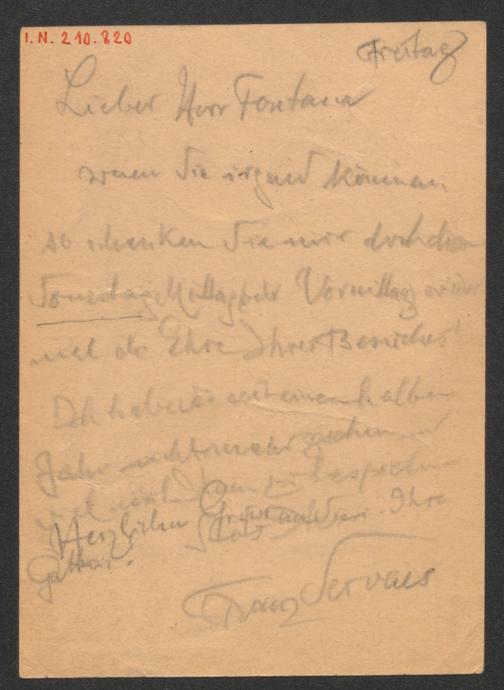 I.N. 210.820
Freitag
Lieber Herr Fontana
wenn Sie irgend können
so schenken Sie mir doch den
Sonntag Mittag oder Vormittag wieder
mal die Ehre Ihres Besuches!
Ich habe Sie seit einem halben
Jahr nicht mehr gesehen und
viel mit Ihnen zu besprechen
Herzlichen Gruss Ihre
Gattin!
Franz Servaes